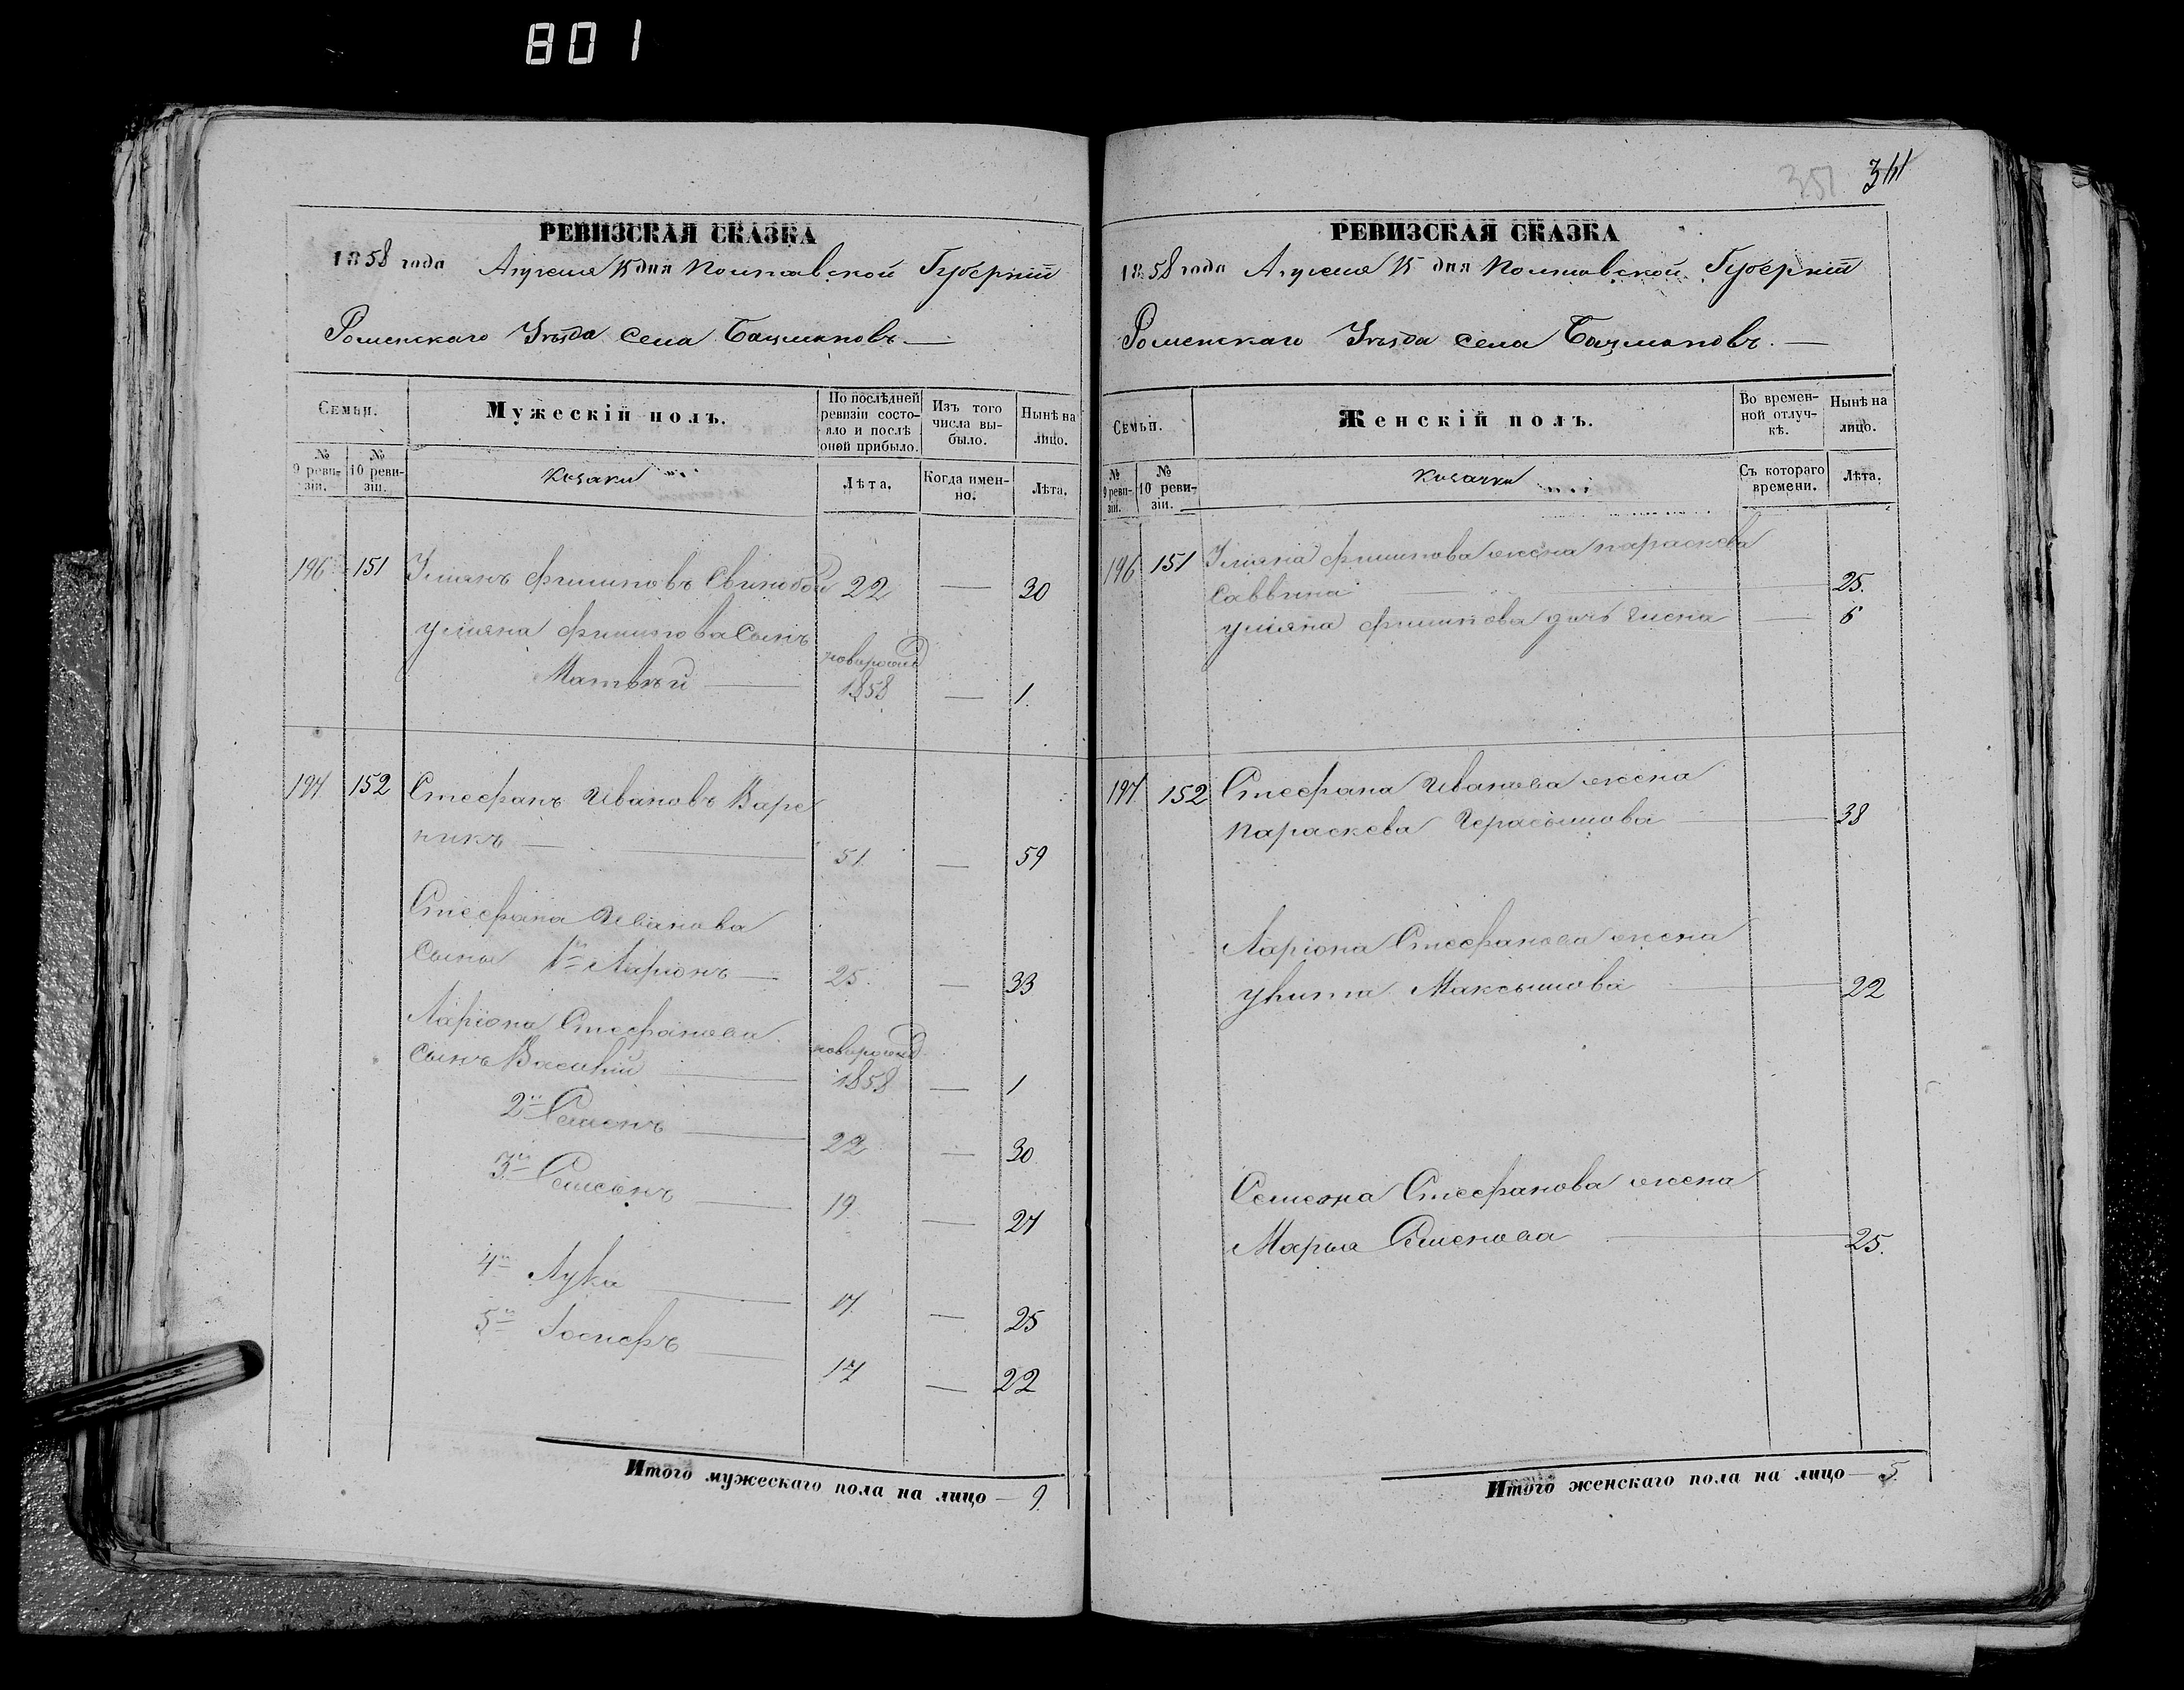 801
351 311
РЕВИЗСКАЯ СКАЗКА
1858 года Апреля 15 дня Полтавской Губерніи
Роменскаго Уѣзда села Бацмановъ
Семьи.
Мужескій полъ.
По послѣдней ревизіи состояло и послѣ оной прибыло.
Изъ того числа выбыло.
Нынѣ на лицо.
№ 9 ревизіи.
№ 10 ревизіи.
Козаки
Лѣта.
Когда именно.
Лѣта.
196 151 Уліянъ Филиповъ Свинобой 22 — 30
Уліяна Филипова сынъ
Матвѣй — новорожд 1858 — 1
197 152 Стефанъ Ивановъ Варе
никъ — 51 — 59
Стефана Иванова
сыны 1й Ларіонъ — 25 — 33
Ларіона Стефанова
сынъ Василій — новорожд 1858 — 1
2й Семенъ — 22 — 30
3й Самсонъ — 19 — 27
4й Лука — 17 — 25
5й Іосифъ — 14 — 22
Итого мужескаго пола на лицо — 9
РЕВИЗСКАЯ СКАЗКА
1858 года Апреля 15 дня Полтавской Губерніи
Роменскаго Уѣзда села Бацмановъ.
Семьи.
Женскій полъ.
Во временной отлучкѣ.
Нынѣ на лицо.
№ 9 ревизіи.
№ 10 ревизіи.
Козачки
Съ котораго времени.
Лѣта.
196 151 Уліяна Филипова жена Параскева
Саввина — 25.
Уліяна Филипова дочь — 6
197 152 Стефана Иванова жена
Параскева Герасымова — 38
Ларіона Стефанова жена
Максымова — 22
Семена Стефанова жена
Марья Семенова — 25.
Итого женскаго пола на лицо — 5.